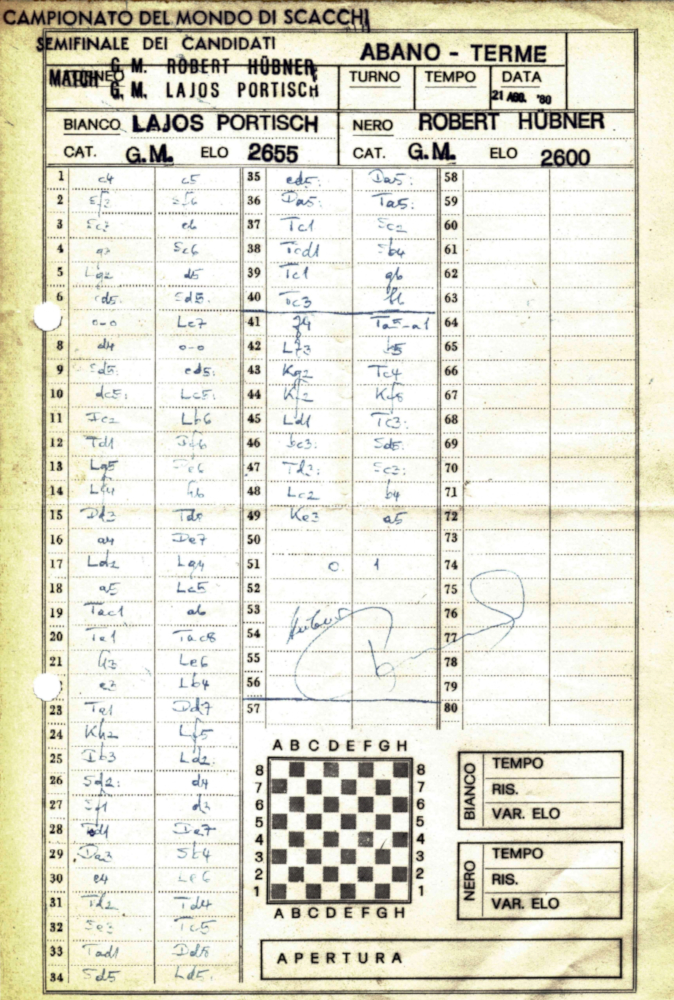 CAMPIONATO DEL MONDO DI SCACCHI
SEMIFINALE DEI CANDIDATI
MATCH G. M. ROBERT HÜBNER
G. M. LAJOS PORTISCH
ABANO - TERME
TURNO TEMPO DATA
21 AGO. '80
BIANCO LAJOS PORTISCH NERO ROBERT HÜBNER
CAT. G.M. ELO 2655 CAT. G.M. ELO 2600
1 c4 c5
2 Sf3 Sf6
3 Sc3 e6
4 g3 Sc6
5 Lg2 d5
6 cd5: Sd5:
0-0 Le7
8 d4 0-0
9 Sd5: ed5:
10 dc5: Lc5:
11 Dc2 Lb6
12 Td1 Df6
13 Lg5 De6
14 Lf4 h6
15 Dd3 Td8
16 a4 De7
17 Ld2 Lg4
18 a5 Lc5
19 Tac1 a6
20 Te1 Tac8
21 h3 Le6
e3 Lb4
23 Dd7
24 Kh2 Lf5
25 Db3 Ld2:
26 Sd2: d4
27 Sf1 d3
28 De7
29 Da3 Sb4
30 e4 Le6
31 Td2 Td4
32 Se3 Tc5
33 Tad1 Dd8
34 Sd5 Ld5:
35 ed5: Da5:
36 Da5: Ta5:
37 Tc1 Sc2
38 Tcd1 Sb4
39 Tc1 g6
40 Tc3
41 g4 Ta5-a1
42 Lf3 b5
43 Kg2 Tc4
44 Kf8
45 Ld1 Tc3:
46 bc3: Sd5:
47 Td3: Sc3:
48 Lc2 b4
49 Ke3 a5
50
51 0 1
52
53
54
55
56
57
58
59
60
61
62
63
64
65
66
67
68
69
70
71
72
73
74
75
76
77
78
79
80
A B C D E F G H
8 8
7 7
6 6
5 5
4 4
3 3
2 2
1 1
A B C D E F G H
BIANCO
TEMPO
RIS.
VAR. ELO
NERO
TEMPO
RIS.
VAR. ELO
APERTURA